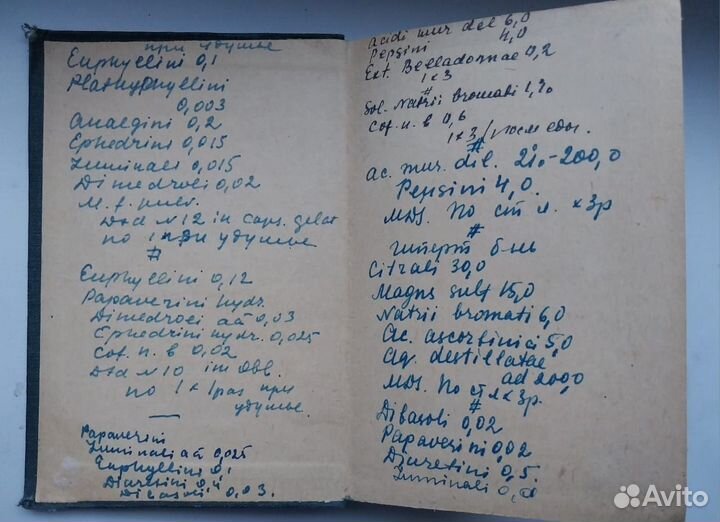 при удушье
Euphyllini 0,1
Plathyphyllini
0,003
Analgini 0,2
Ephedrini 0,015
Luminali 0,015
Dimedroli 0,02
M. f. pulv.
Dtd N 12 in caps. gelat
по 1 при удушье
#
Euphyllini 0,12
Papaverini hydr.
Dimedroli aa 0,03
Ephedrini hydr. 0,025
Cof. n. b 0,02
Dtd N 10 in obl.
по 1 x 1 раз при
удушье.
Papaverini
Luminali aa 0,025
Euphyllini 0,1
Diuretini 0,4
Dibasoli 0,03.
Acidi mur dil 6,0
Pepsini 4,0
Ext. Belladornae 0,2
1 x 3
#
Sol. Natrii bromati 1,%
Cof. n. b 0,6
1 x 3 / после еды.
#
Ac. mur. dil. 2%-200,0
Pepsini 4,0.
MDS. По ст л. x 3 р
#
гиперт б-нь
Citrali 30,0
Magns sulf 15,0
Natrii bromati 6,0
Ac. ascorbinici 5,0
Aq. destillatae
ad 200,0
MDS. По ст л x 3 р.
#
Dibasoli 0,02
Papaverini 0,02
Diuretini 0,5.
Luminali
Avito